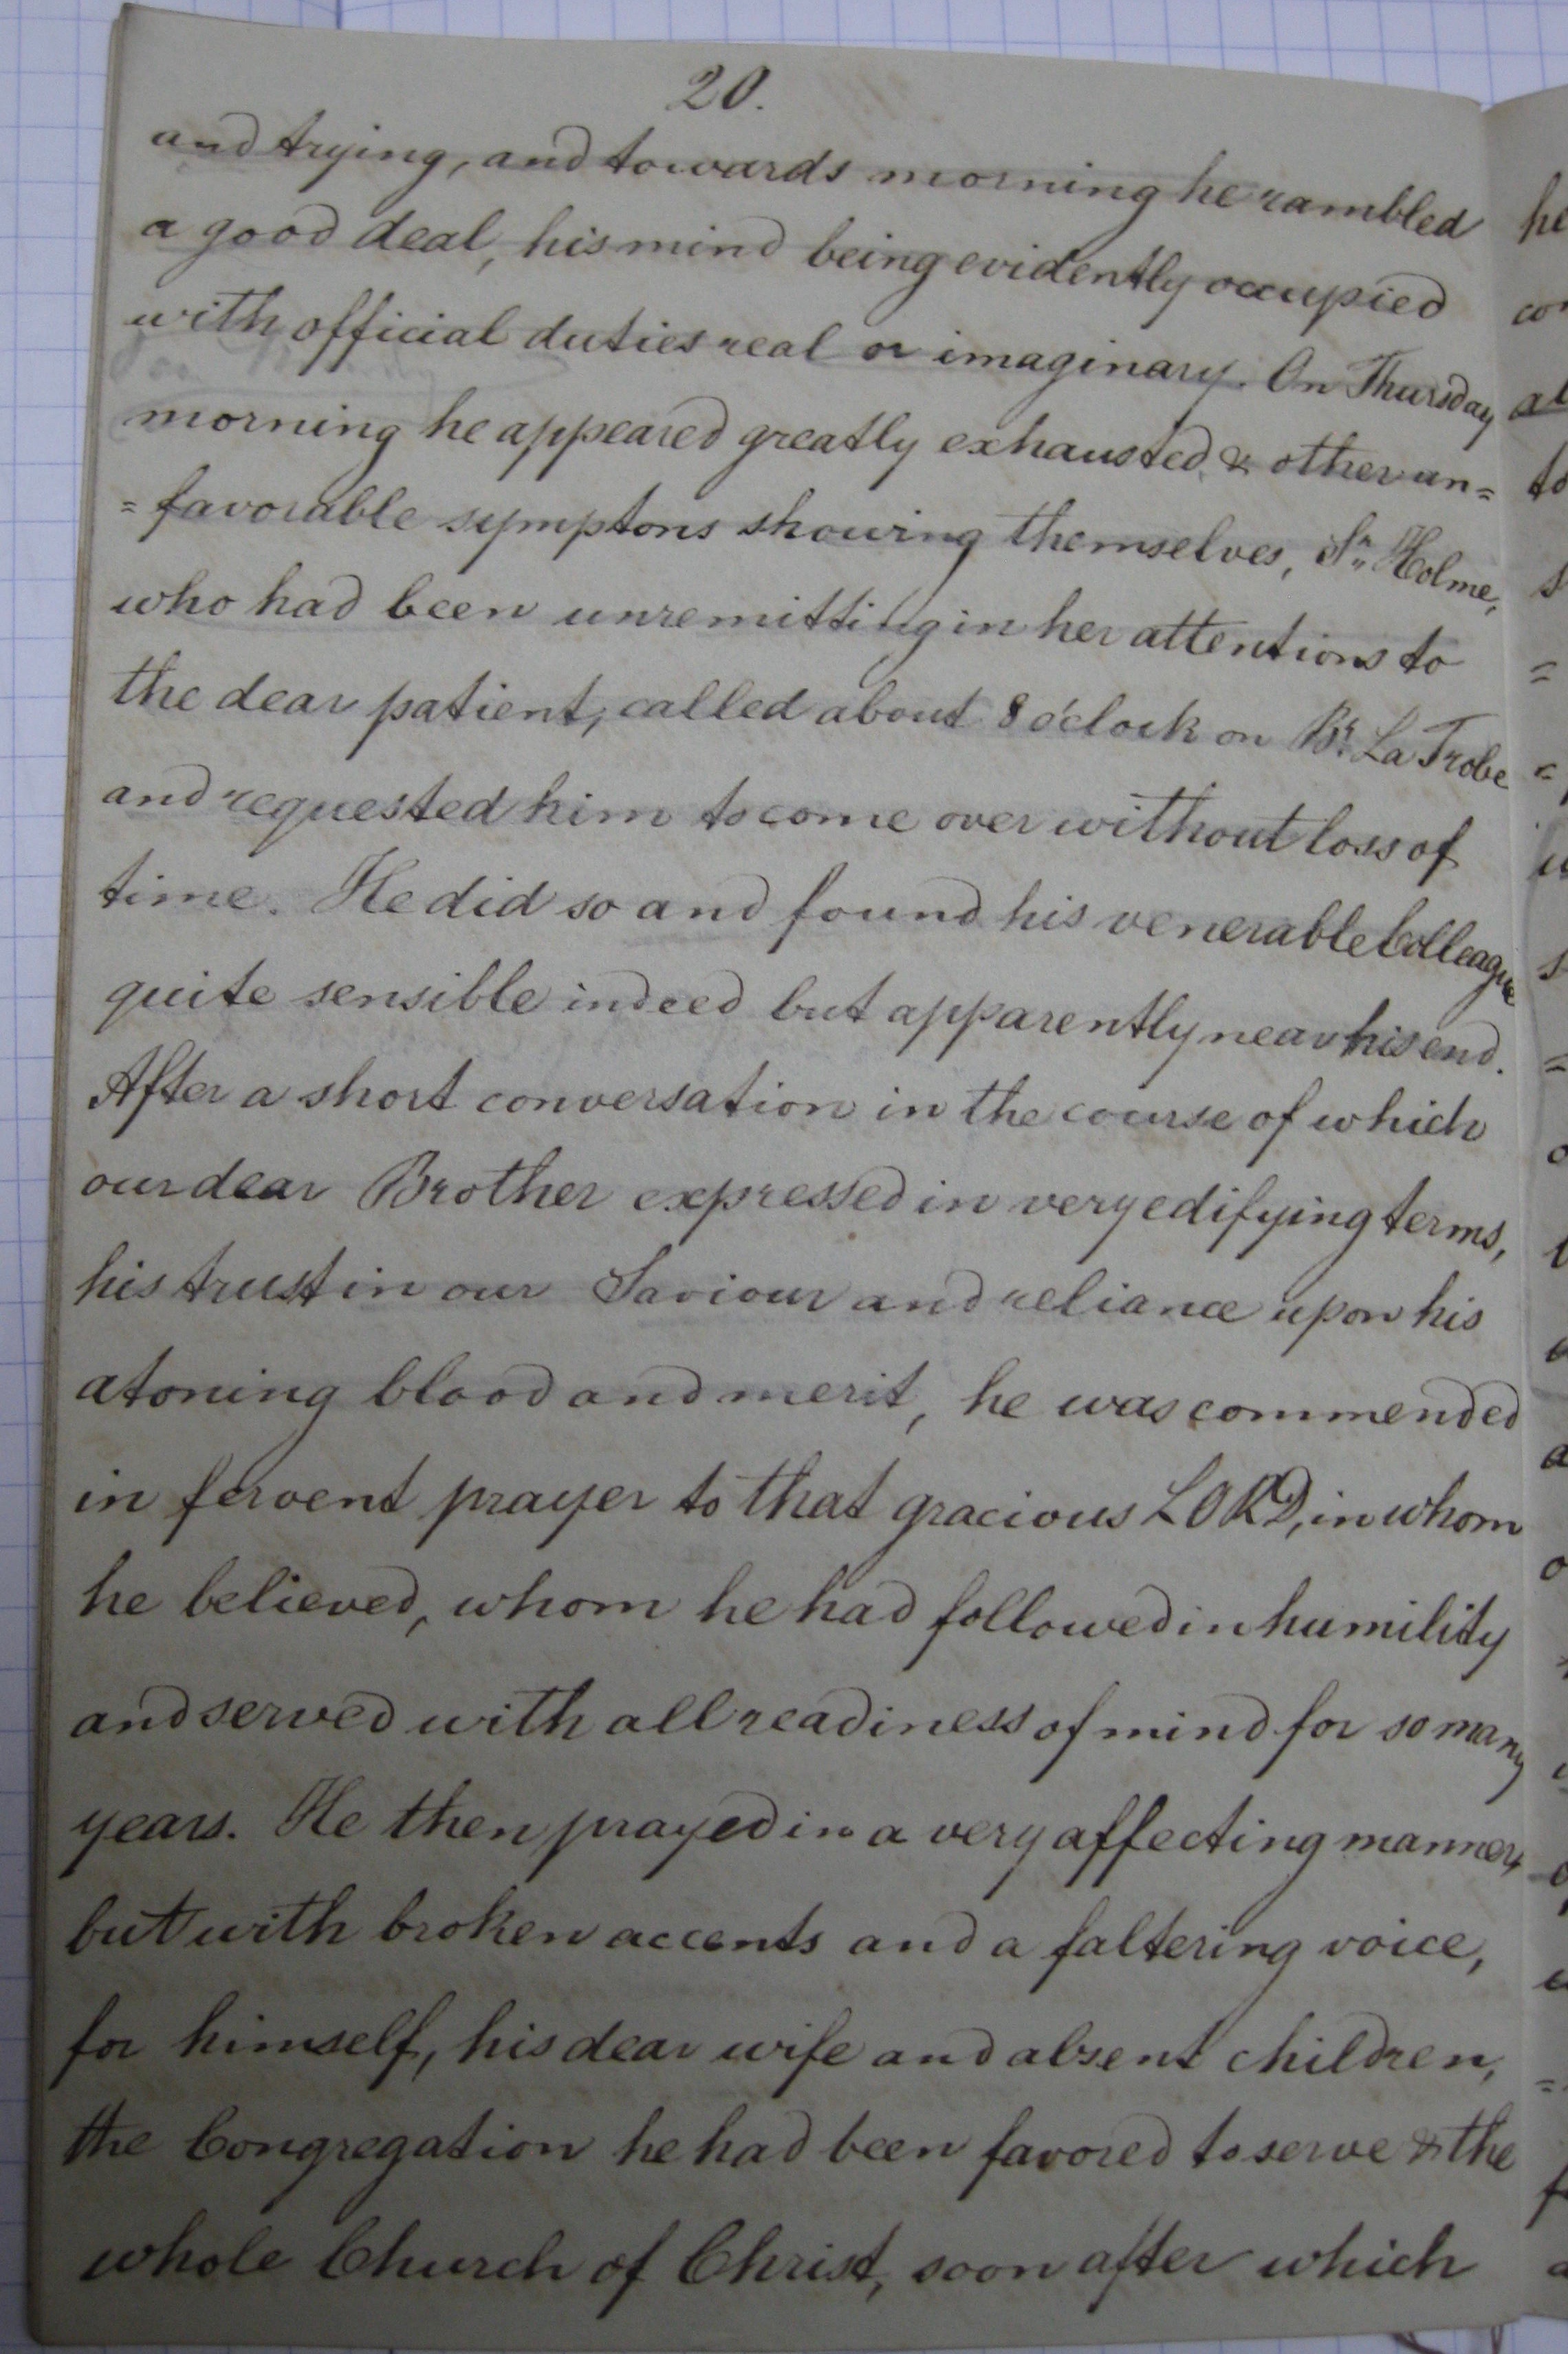 20.
and trying, and towards morning he rambled
a good deal, his mind being evidently occupied
with official duties real or imaginary. On Thursday
morning he appeared greatly exhausted, & other un=
=favorable symptons showing themselves, Sr. Holme,
who had been unremitting in her attentions to
the dear patient, called about 8 o'clock on Br. La Trobe
and requested him to come over without loss of
time. He did so and found his venerable Colleague
quite sensible indeed but apparently near his end.
After a short conversation in the course of which
our dear Brother expressed in very edifying terms,
his trust in our Saviour and reliance upon his
atoning blood and merit, he was commended
in fervent prayer to that gracious LORD, in whom
he believed, whom he had followed in humility
and served with all readiness of mind for so many
years. He then prayed in a very affecting manner,
but with broken accents and a faltering voice,
for himself, his dear wife and absent children,
the Congregation he had been favored to serve & the
whole Church of Christ, soon after which